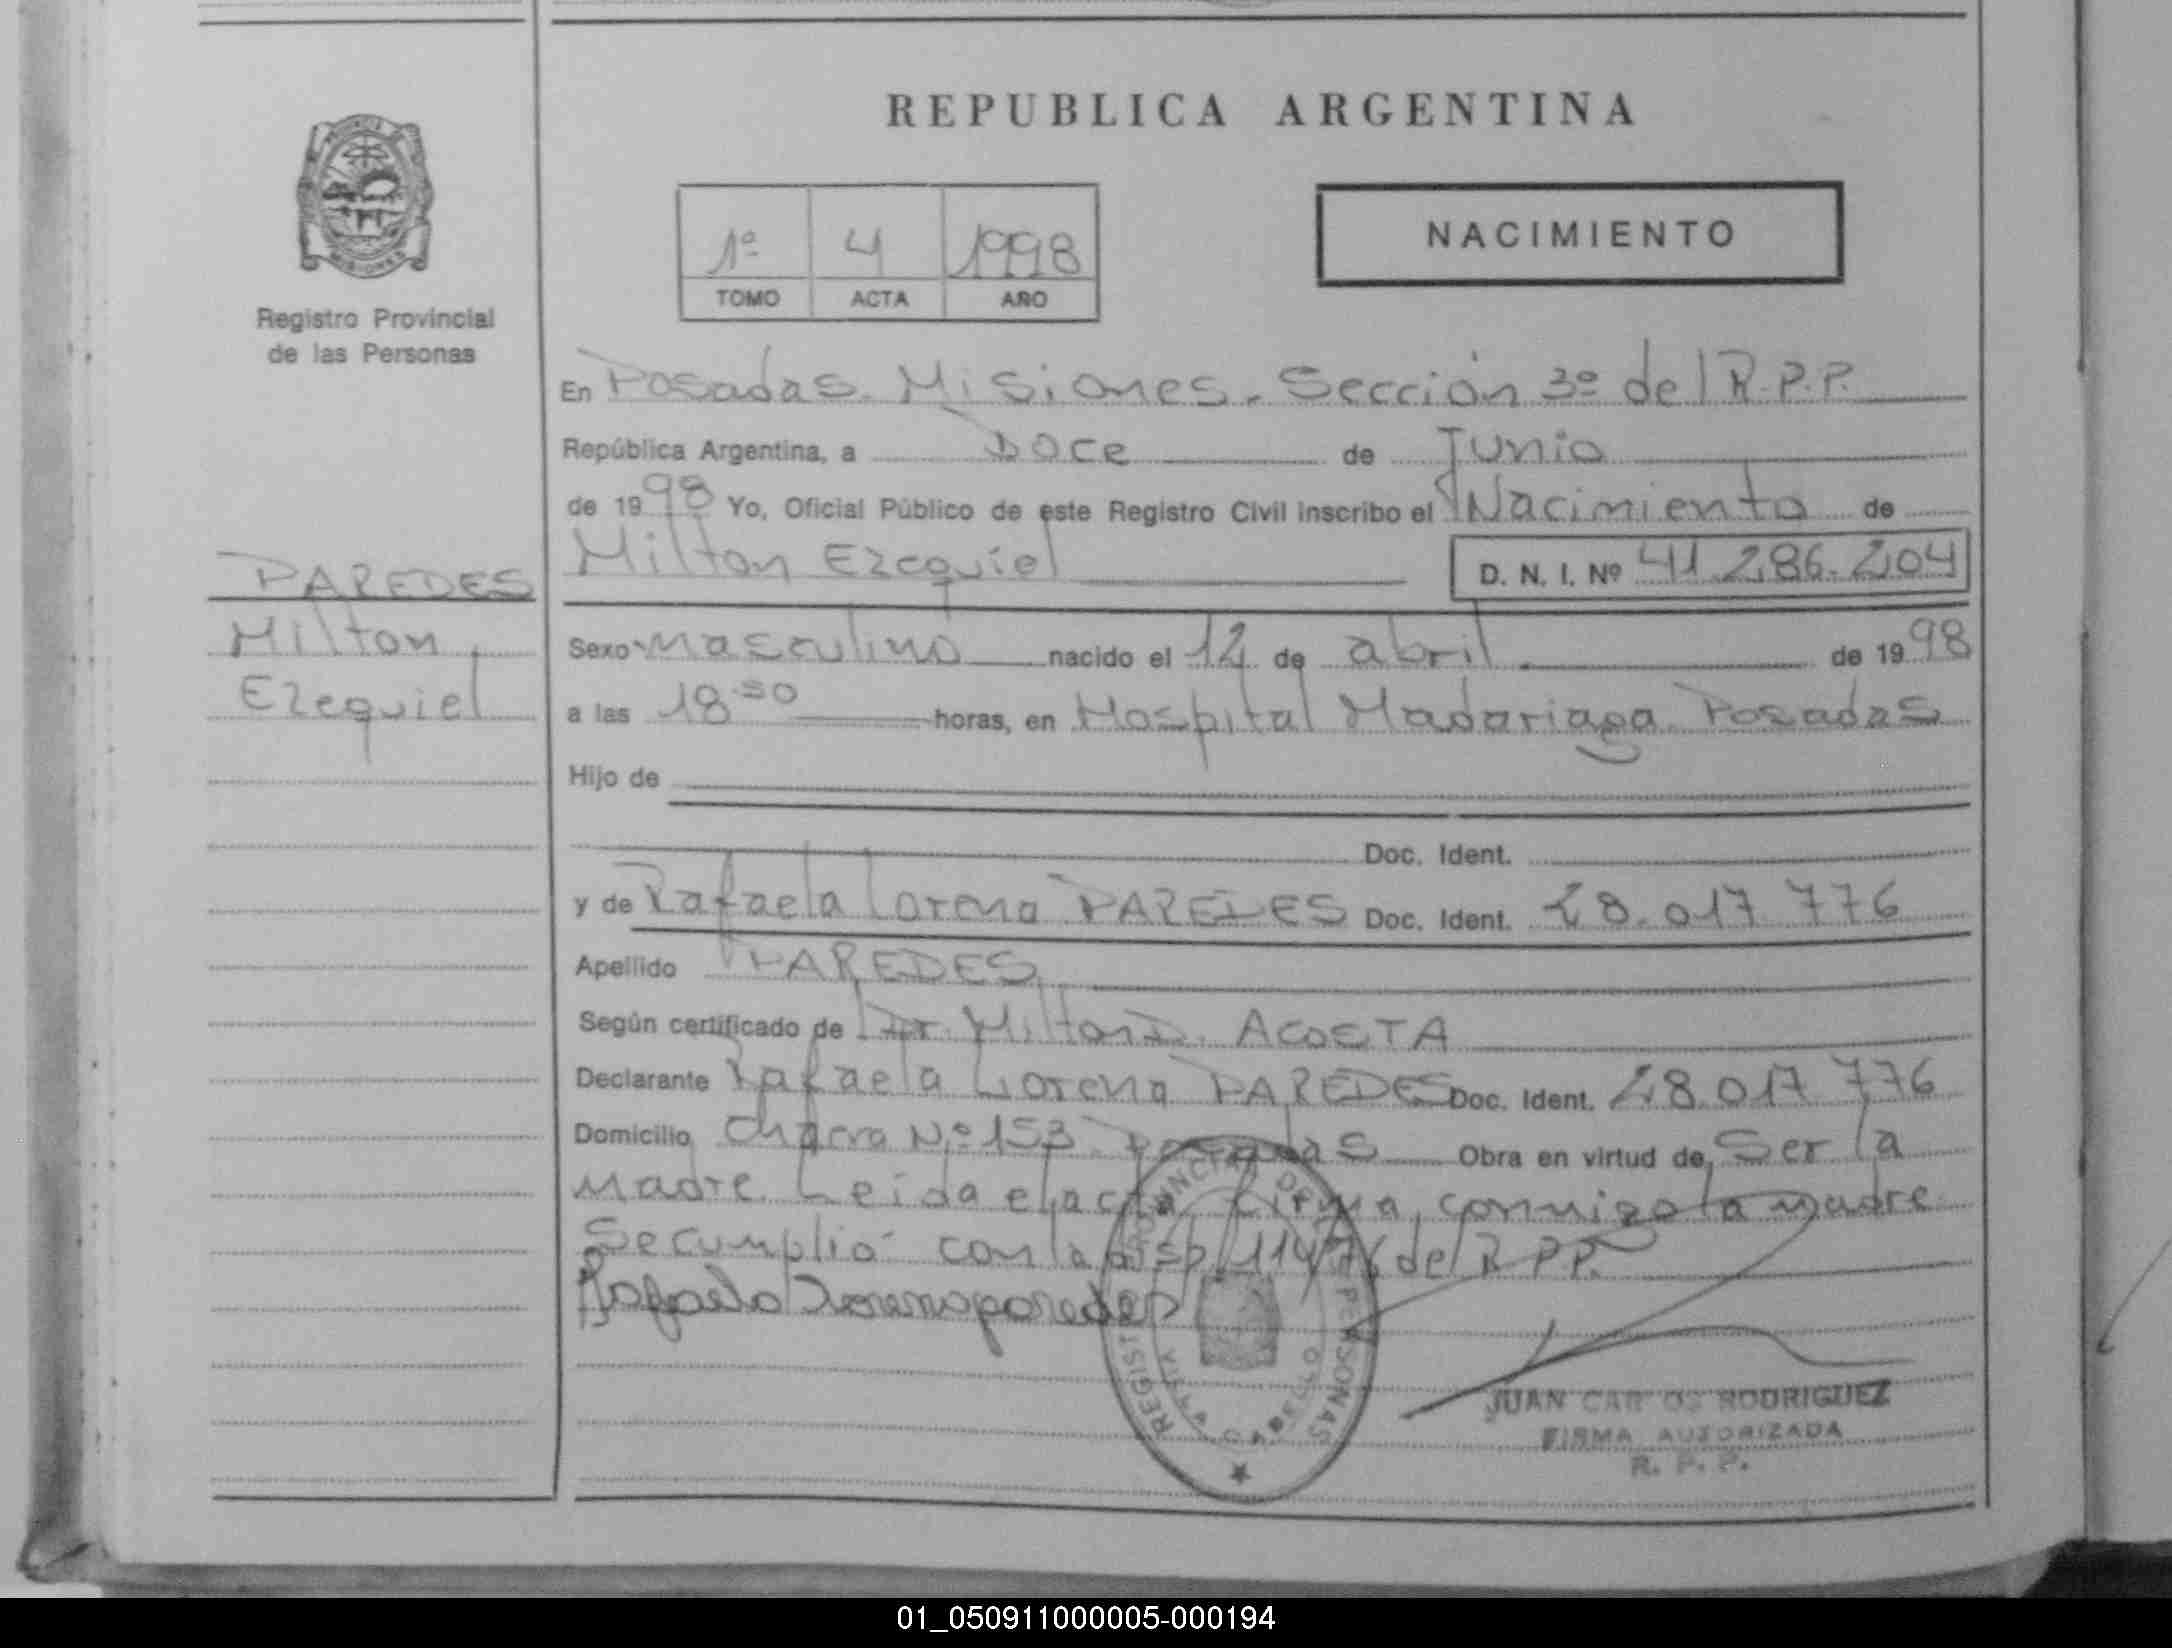 REPUBLICA ARGENTINA
NACIMIENTO
1º 4 1998
TOMO ACTA AÑO
Registro Provincial
de las Personas
En Posadas. Misiones. Sección 3º del R.P.P.
República Argentina, a Doce de Junio
de 1998 Yo, Oficial Público de este Registro Civil inscribo el Nacimiento de
Milton Ezequiel D. N. I. Nº 41.286.204
PAREDES
Milton
Ezequiel
Sexo masculino nacido el de abril de 1998
a las 18 horas, en Hospital Madariaga Posadas
Hijo de
Doc. Ident.
y de Rafaela Lorena PAREDES Doc. Ident. 28.017.776
Apellido PAREDES
Según certificado de Dr. Milton D. ACOSTA
Declarante Rafaela Lorena PAREDES Doc. Ident. 28.017.776
Domicilio Chacra Nº 153 Posadas Obra en virtud de Ser la
madre. Leida el acta firma conmigo la madre
Se cumplió con la disp del R.P.P.
Rafaela Lorena paredes
REGISTRO PROVINCIAL DE PERSONAS
CABELLO
JUAN CARLOS RODRIGUEZ
FIRMA AUTORIZADA
R. P. P.
01_050911000005-000194